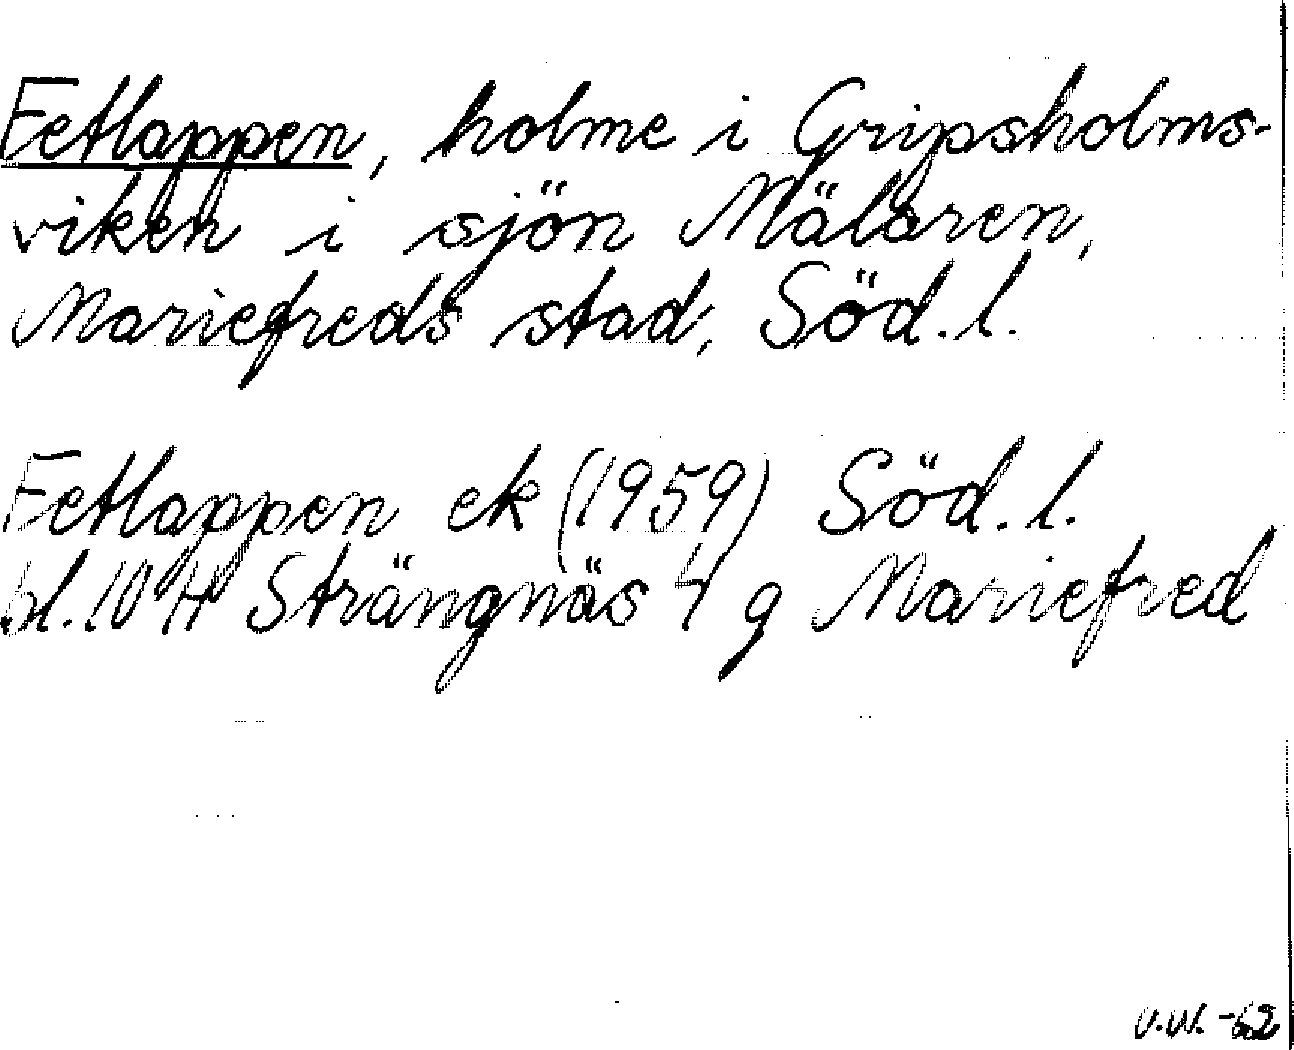 Fetlappen, holme i Gripsholms-
viken i sjön Mälaren,
Mariefreds stad, Söd. l.
Fetlappen ek (1959) Söd. l.
bl. 10 H Strängnäs 4 g Mariefred
V.W. -62